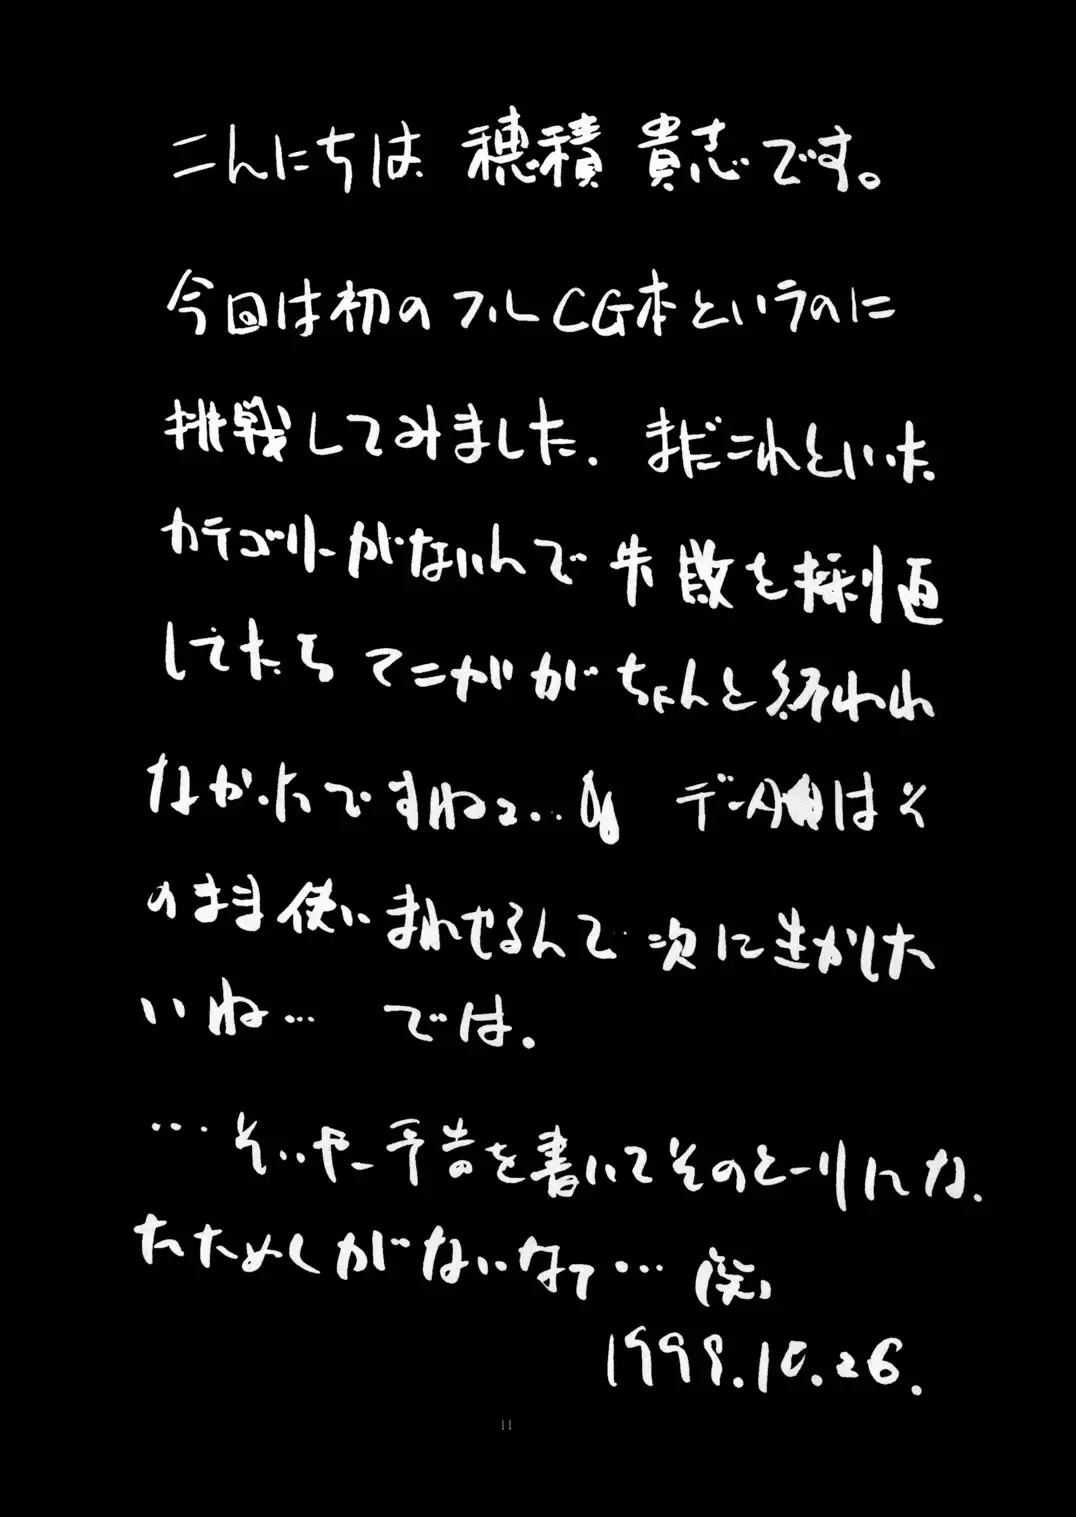 こんにちは 穂積 貴志です。
今回は初のフルCG本というのに
挑戦してみました. まだこれといった
カテゴリーがないんで 失敗を採り直
してたら てこがが ちゃんと終われ
なかったですねェ... データは そ
のまま使いまわせるんで… 次に生かした
いね… では.
… そいやー予告を書いてそのとーりにな.
ったためしがないなァ… (笑)
1998.10.26.
11